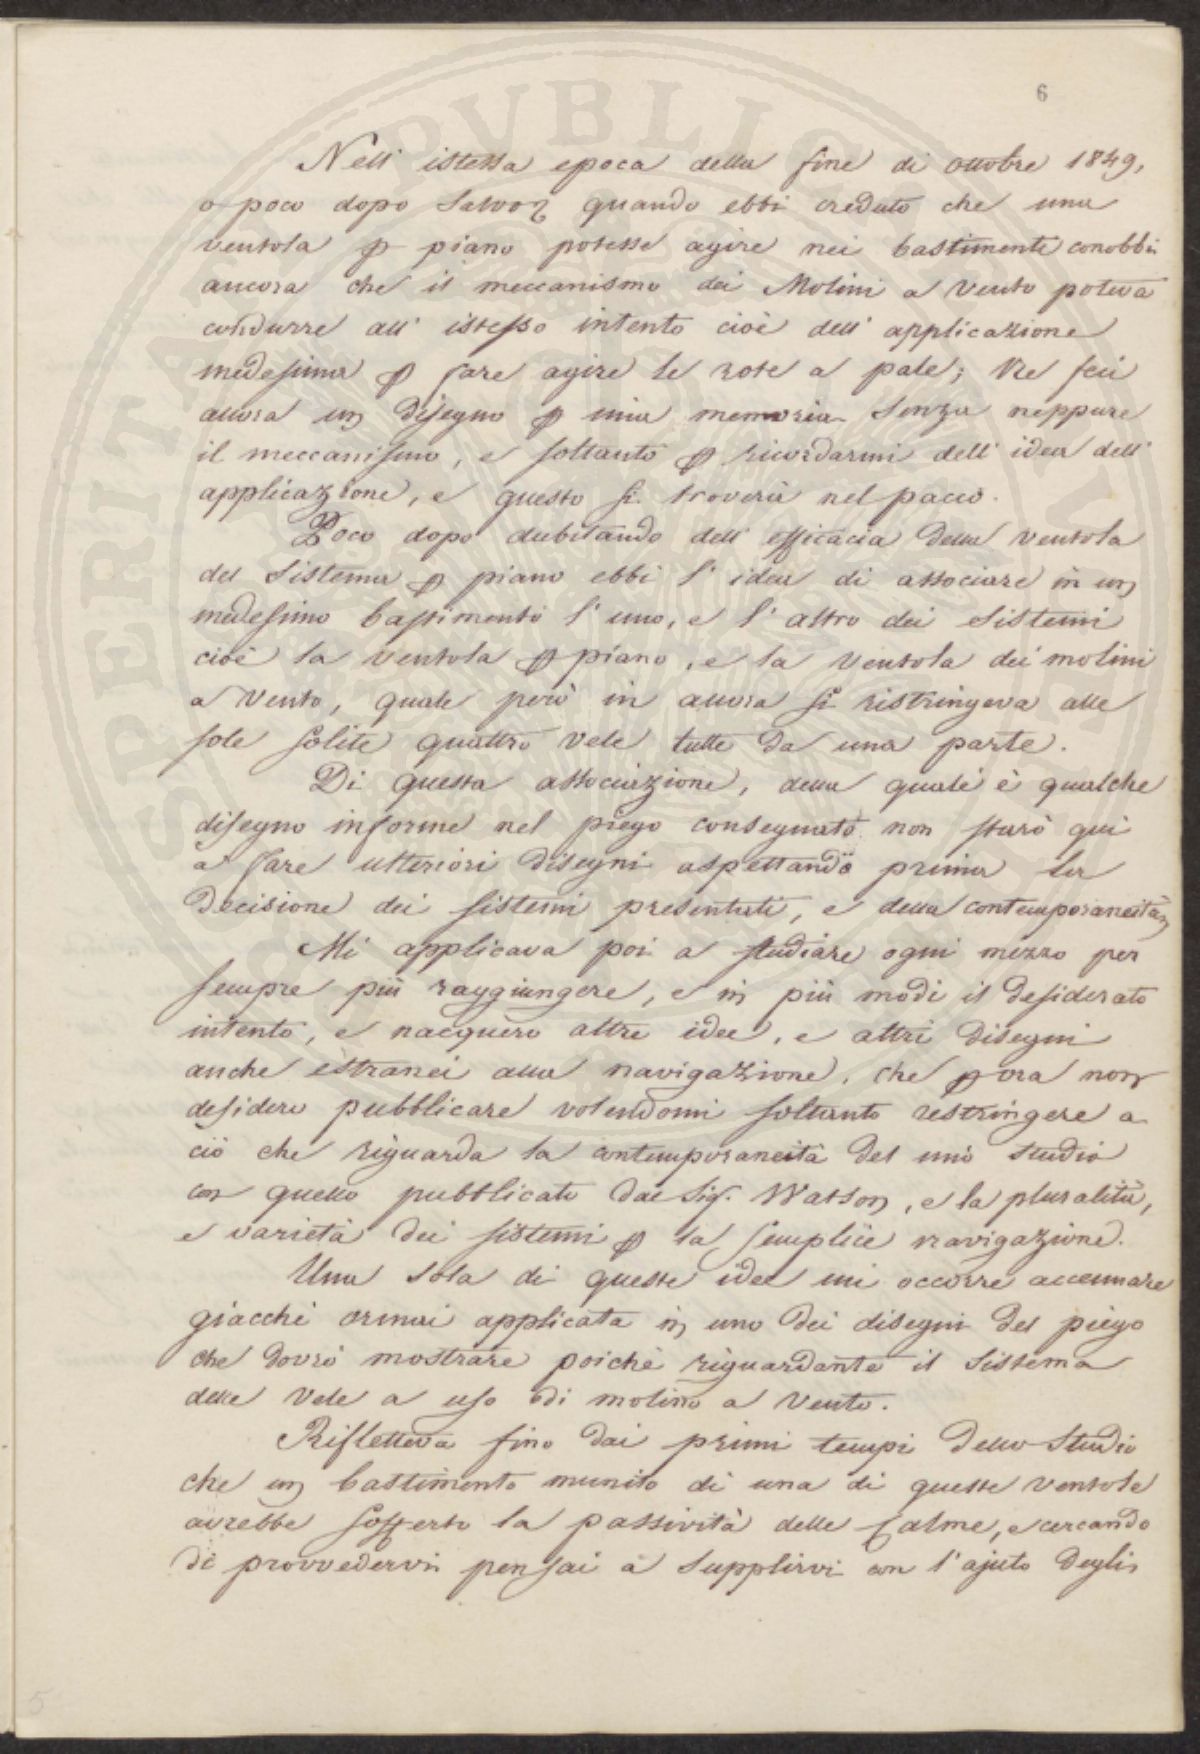 6
Nell' istessa epoca della fine di ottobre 1849,
o poco dopo Salvon quando ebbi creduto che una
ventola p piano potesse agire nei bastimenti conobbi
ancora che il meccanismo dei Molini a vento poteva
condurre all' istesso intento cioè dell' applicazione
medesima p fare agire le rote a pale; Ne feci
allora un disegno p mia memoria senza neppure
il meccanismo, e soltanto p ricordarmi dell' idea dell'
applicazione, e questo si troverà nel pacco.
Poco dopo dubitando dell' efficacia della ventola
del Sistema p piano ebbi l' idea di associare in un
medesimo bastimento l' uno, e l' altro dei Sistemi
cioè la ventola p piano, e la ventola dei molini
a vento, quale però in allora si ristringeva alle
sole solite quattro vele tutte da una parte.
Di questa associazione, della quale è qualche
disegno informe nel piego consegnato non starò qui
a fare ulteriori disegni aspettando prima la
Decisione dei sistemi presentati, e della contemporaneità
Mi applicava poi a studiare ogni mezzo per
sempre più raggiungere, e in più modi il desiderato
intento, e nacquero altre idee, e altri disegni
anche estranei alla navigazione, che p ora non
desidero pubblicare volendomi soltanto restringere a
ciò che riguarda la contemporaneità del mio studio
con quello pubblicato dal Sig. Watson, e la pluralità,
e varietà dei sistemi p la semplice navigazione.
Una sola di queste idee mi occorre accennare
giacchè ormai applicata in uno dei disegni del piego
che dovrò mostrare poichè riguardante il Sistema
delle Vele a uso di molino a Vento.
Rifletteva fino dai primi tempi dello Studio
che un bastimento munito di una di queste ventole
avrebbe sofferto la passività delle Calme, e cercando
di provvedervi pensai a supplirvi con l' ajuto degli
5
SPERITAS PVBLICA